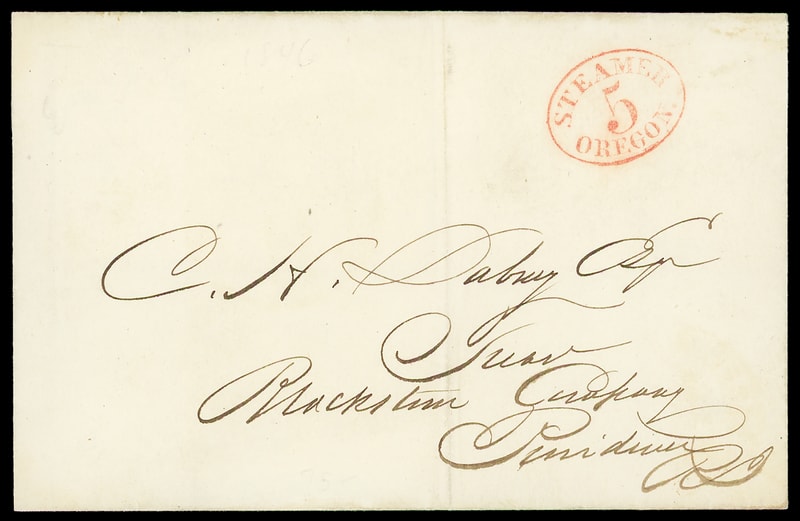 1846
STEAMER
5
OREGON.
C. H. Dabney Esqr
Treasr
Blackstone Company
Providence RI